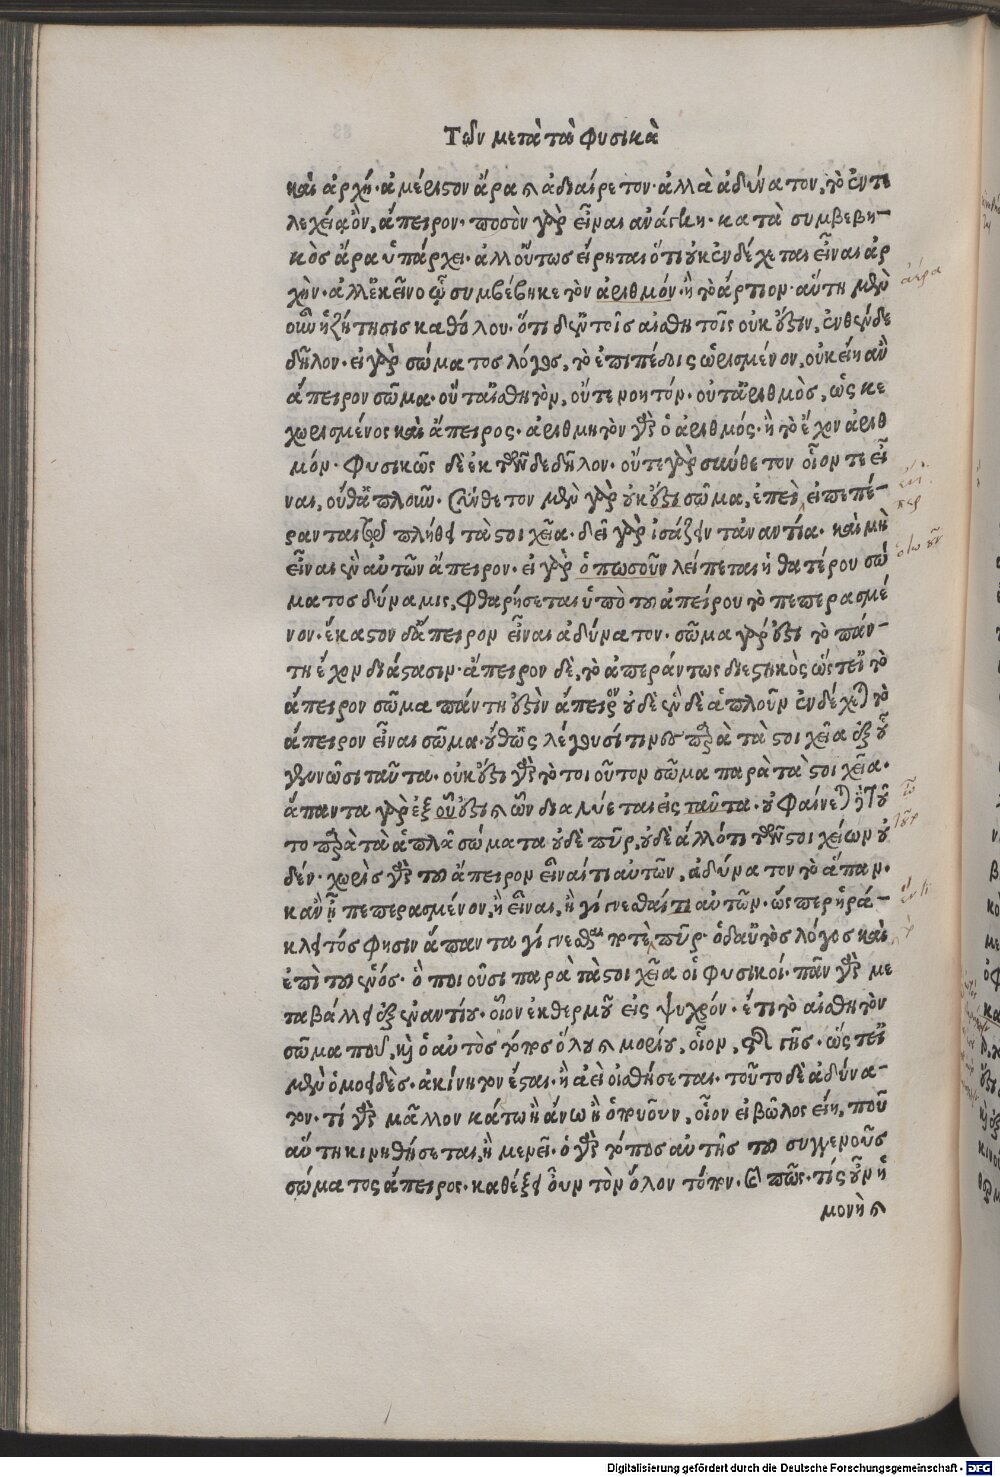 Τῶν μετὰ τὰ φυσικὰ
καὶ ἀρχή· ἀμέριστον ἄρα καὶ ἀδιαίρετον· ἀλλὰ ἀδύνατον, τὸ ἐντε
λεχείᾳ ὂν, ἄπειρον· ποσὸν γὰρ εἶναι ἀνάγκη· κατὰ συμβεβη-
κὸς ἄρα ὑπάρχει· ἀλλ' οὕτως εἴρηται ὅτι οὐκ ἐνδέχεται εἶναι ἀρ
χήν· ἀλλ' ἐκεῖνο ᾧ συμβέβηκε τὸν ἀριθμόν· ἢ τὸ ἄρτιον· αὕτη μὲν
οὖν ἡ ζήτησις καθόλου· ὅτι δ' ἐν τοῖς αἰσθητοῖς οὐκ ἔστιν, ἐνθένδε
δῆλον· εἰ γὰρ σώματος λόγος, τὸ ἐπιπέδοις ὡρισμένον, οὐκ εἴη ἂν
ἄπειρον σῶμα· οὔτ' αἰσθητὸν, οὔτε νοητόν· οὔτ' ἀριθμὸς, ὡς κε
χωρισμένος καὶ ἄπειρος· ἀριθμητὸν γὰρ ὁ ἀριθμός· ἢ τὸ ἔχον ἀριθ
μόν· φυσικῶς δὲ ἐκ τῶνδε δῆλον· οὔτε γὰρ σύνθετον οἷον τε εἶ
ναι, οὔθ' ἁπλοῦν· σύνθετον μὲν γὰρ οὐκ ἔσται σῶμα, ἐπεὶ, εἰ πεπέ-
ρανται τῷ πλήθει τὰ στοιχεῖα· δεῖ γὰρ ἰσάζειν τἀναντία· καὶ μὴ
εἶναι ἓν αὐτῶν ἄπειρον· εἰ γὰρ ὁπωσοῦν λείπεται ἡ θατέρου σώ
ματος δύναμις, φθαρήσεται ὑπὸ τοῦ ἀπείρου τὸ πεπερασμέ
νον· ἕκαστον δ' ἄπειρον εἶναι ἀδύνατον· σῶμα γάρ ἐστι τὸ πάν-
τῃ ἔχον διάστασιν· ἄπειρον δὲ, τὸ ἀπεράντως διεστηκὸς ὥστ' εἰ τὸ
ἄπειρον σῶμα πάντῃ ἐστὶν ἄπειρον οὐδὲ ἓν δὲ ἁπλοῦν ἐνδέχεται τὸ
ἄπειρον εἶναι σῶμα· οὔθ' ὥς λέγουσί τινες παρὰ τὰ στοιχεῖα ἐξ οὗ
γεννῶσι ταῦτα· οὐκ ἔστι γὰρ τὸ τοιοῦτον σῶμα παρὰ τὰ στοιχεῖα·
ἅπαντα γὰρ ἐξ οὗ ἐστι καὶ ὧν διαλύεται εἰς ταῦτα· οὐ φαίνεται δὲ τοῦ
το παρὰ τὰ ἁπλᾶ σώματα οὐδὲ πῦρ, οὐδὲ ἄλλό τι τῶν στοιχείων οὐ
δέν· χωρὶς γὰρ τοῦ ἄπειρον εἶναί τι αὐτῶν, ἀδύνατον τὸ ἅπαν·
κἂν ᾖ πεπερασμένον, ἢ εἶναι, ἢ γίγνεσθαί τι αὐτῶν· ὥσπερ ἡρά-
κλειτός φησιν ἅπαντα γίγνεσθαι ποτὲ πῦρ· ὁ δ' αὐτὸς λόγος καὶ
ἐπὶ τοῦ ἑνός· ὃ ποιοῦσι παρὰ τὰ στοιχεῖα οἱ φυσικοί· πᾶν γὰρ με
ταβάλλει ἐξ ἐναντίου· οἷον ἐκ θερμοῦ εἰς ψυχρόν· ἔτι τὸ αἰσθητὸν
σῶμα ποῦ, καὶ ὁ αὐτὸς τόπος ὅλου καὶ μορίου, οἷον, τῆς γῆς· ὥστ' εἰ
μὲν ὁμοειδὲς· ἀκίνητον ἔσται· ἢ ἀεὶ οἰσθήσεται· τοῦτο δὲ ἀδύνα-
τον· τί γὰρ μᾶλλον κάτω ἢ ἄνω ἢ ὁπουοῦν, οἷον εἰ βῶλος εἴη, ποῦ
αὕτη κινηθήσεται, ἢ μενεῖ· ὁ γὰρ τόπος αὐτῆς τοῦ συγγενοῦς
σώματος ἄπειρος· καθέξει οὖν τὸν ὅλον τόπον· καὶ πῶς· τίς οὖν ἡ
μονὴ καὶ